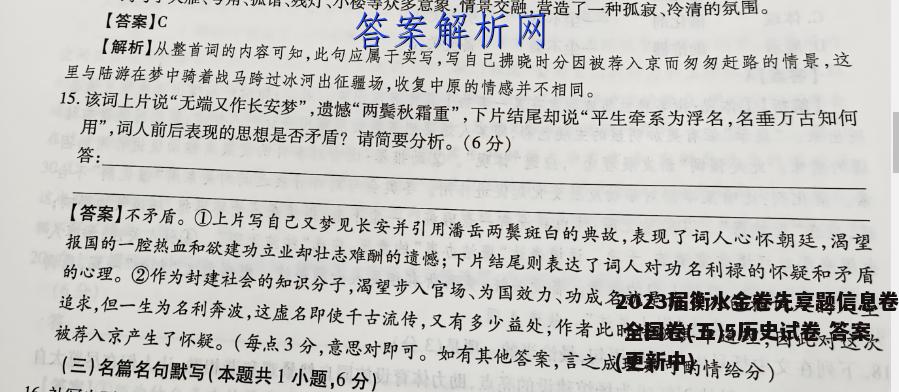 大雁、号角、孤馆、残灯、小楼等众多意象,情景交融,营造了一种孤寂、冷清的氛围。
【答案】C
答案解析网
【解析】从整首词的内容可知,此句应属于实写,写自己拂晓时分因被荐入京而匆匆赶路的情景,这
里与陆游在梦中骑着战马跨过冰河出征疆场,收复中原的情感并不相同。
15.该词上片说“无端又作长安梦”,遗憾“两鬓秋霜重”,下片结尾却说“平生牵系为浮名,名垂万古知何
用”,词人前后表现的思想是否矛盾?请简要分析。(6分)
答:
【答案】不矛盾。①上片写自己又梦见长安并引用潘岳两鬓斑白的典故,表现了词人心怀朝廷,渴望
报国的一腔热血和欲建功立业却壮志难酬的遗憾;下片结尾则表达了词人对功名利禄的怀疑和矛盾
的心理。②作为封建社会的知识分子,渴望步入官场、为国效力、功成名
追求,但一生为名利奔波,这虚名即使千古流传,又有多少益处,作者此时
被荐入京产生了怀疑。(每点3分,意思对即可。如有其他答案,言之成理
的情给分)
2023届衡水金卷先享题信息卷
全国卷(五)5历史试卷 答案
(更新中)
因此对这次
(三)名篇名句默写(本题共1小题,6分)